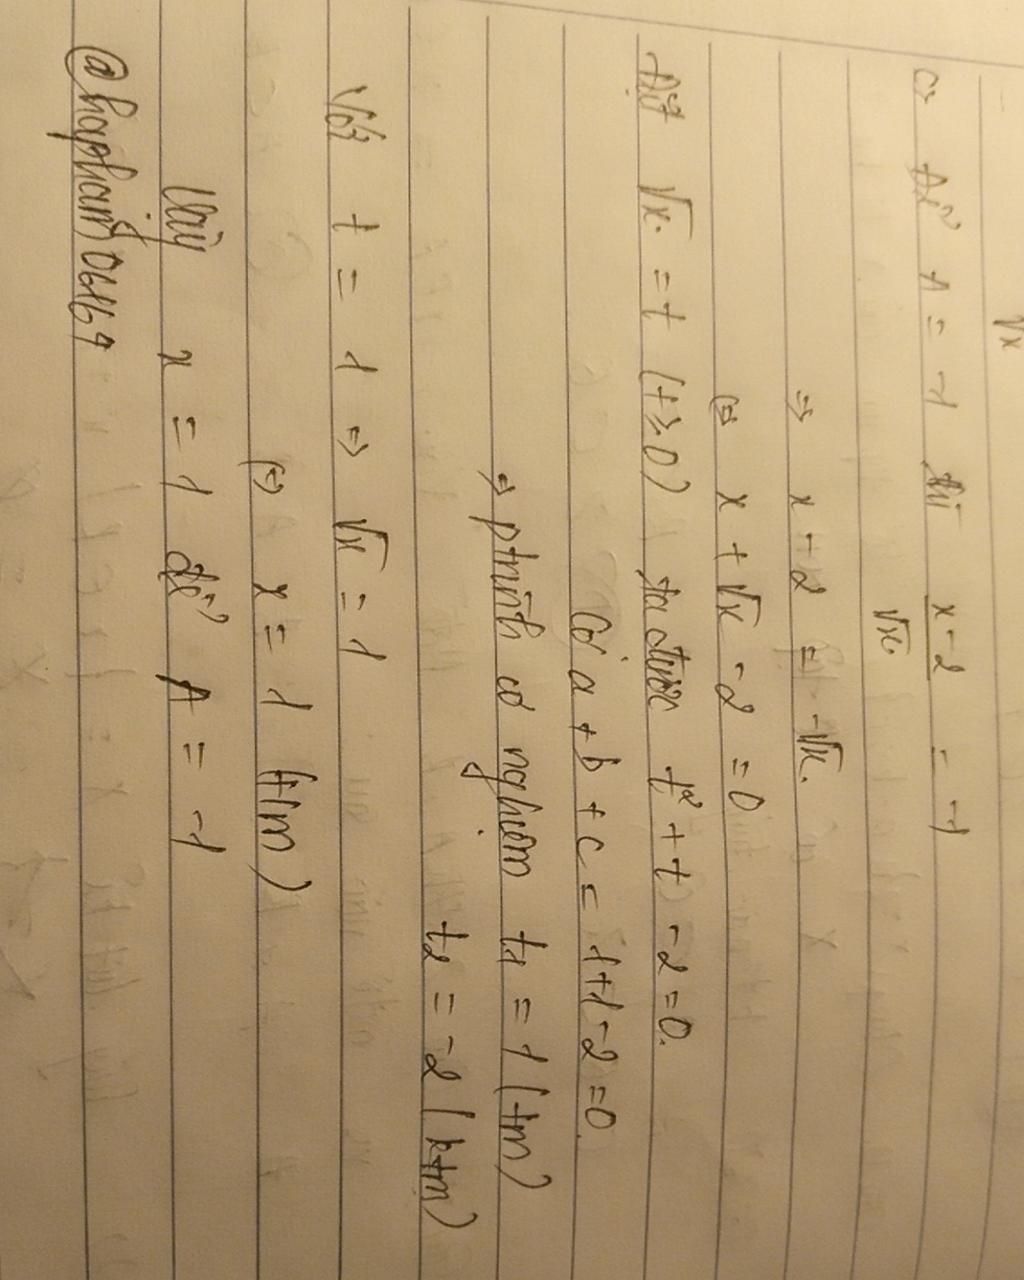 √x
c) Để A = -1 thì x-2/√x = -1
⇒ x - 2 = -√x.
⇔ x + √x - 2 = 0
Đặt √x = t (t ≥ 0) ta được t² + t - 2 = 0.
Có a + b + c = 1+1-2 = 0
⇒ ptrình có nghiệm t1 = 1 (tm)
t2 = -2 (ktm)
Với t = 1 ⇒ √x = 1
⇔ x = 1 (t/m)
Vậy x = 1 để A = -1